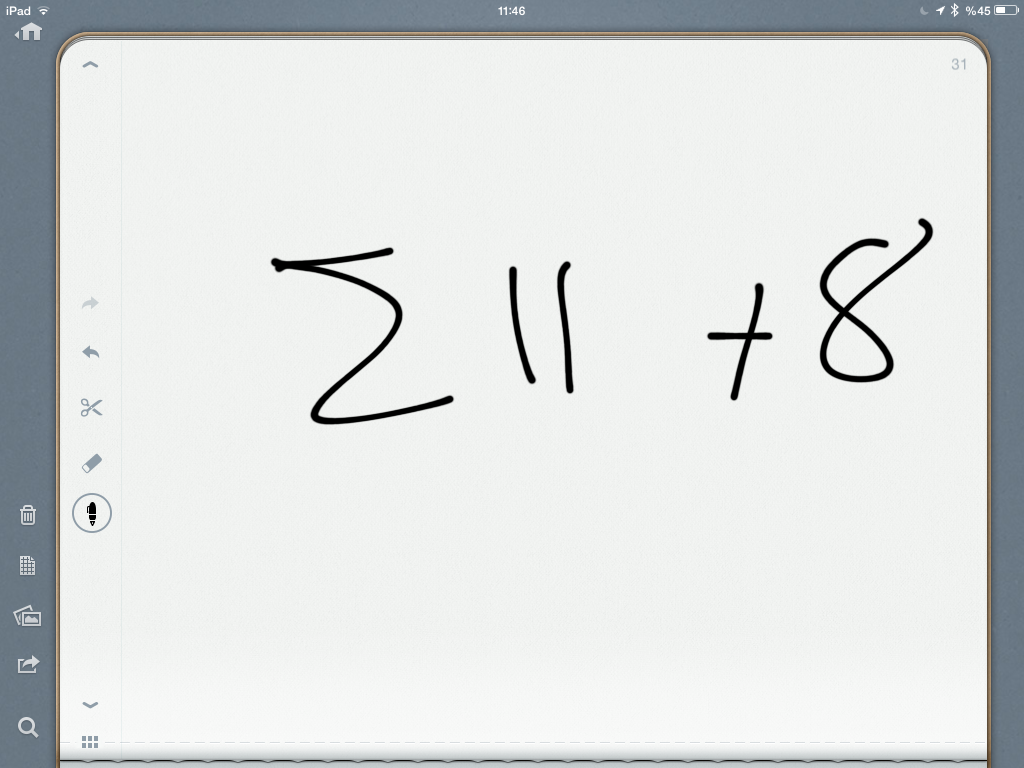 iPad 11:46 %45
31
Σ 11 + 8